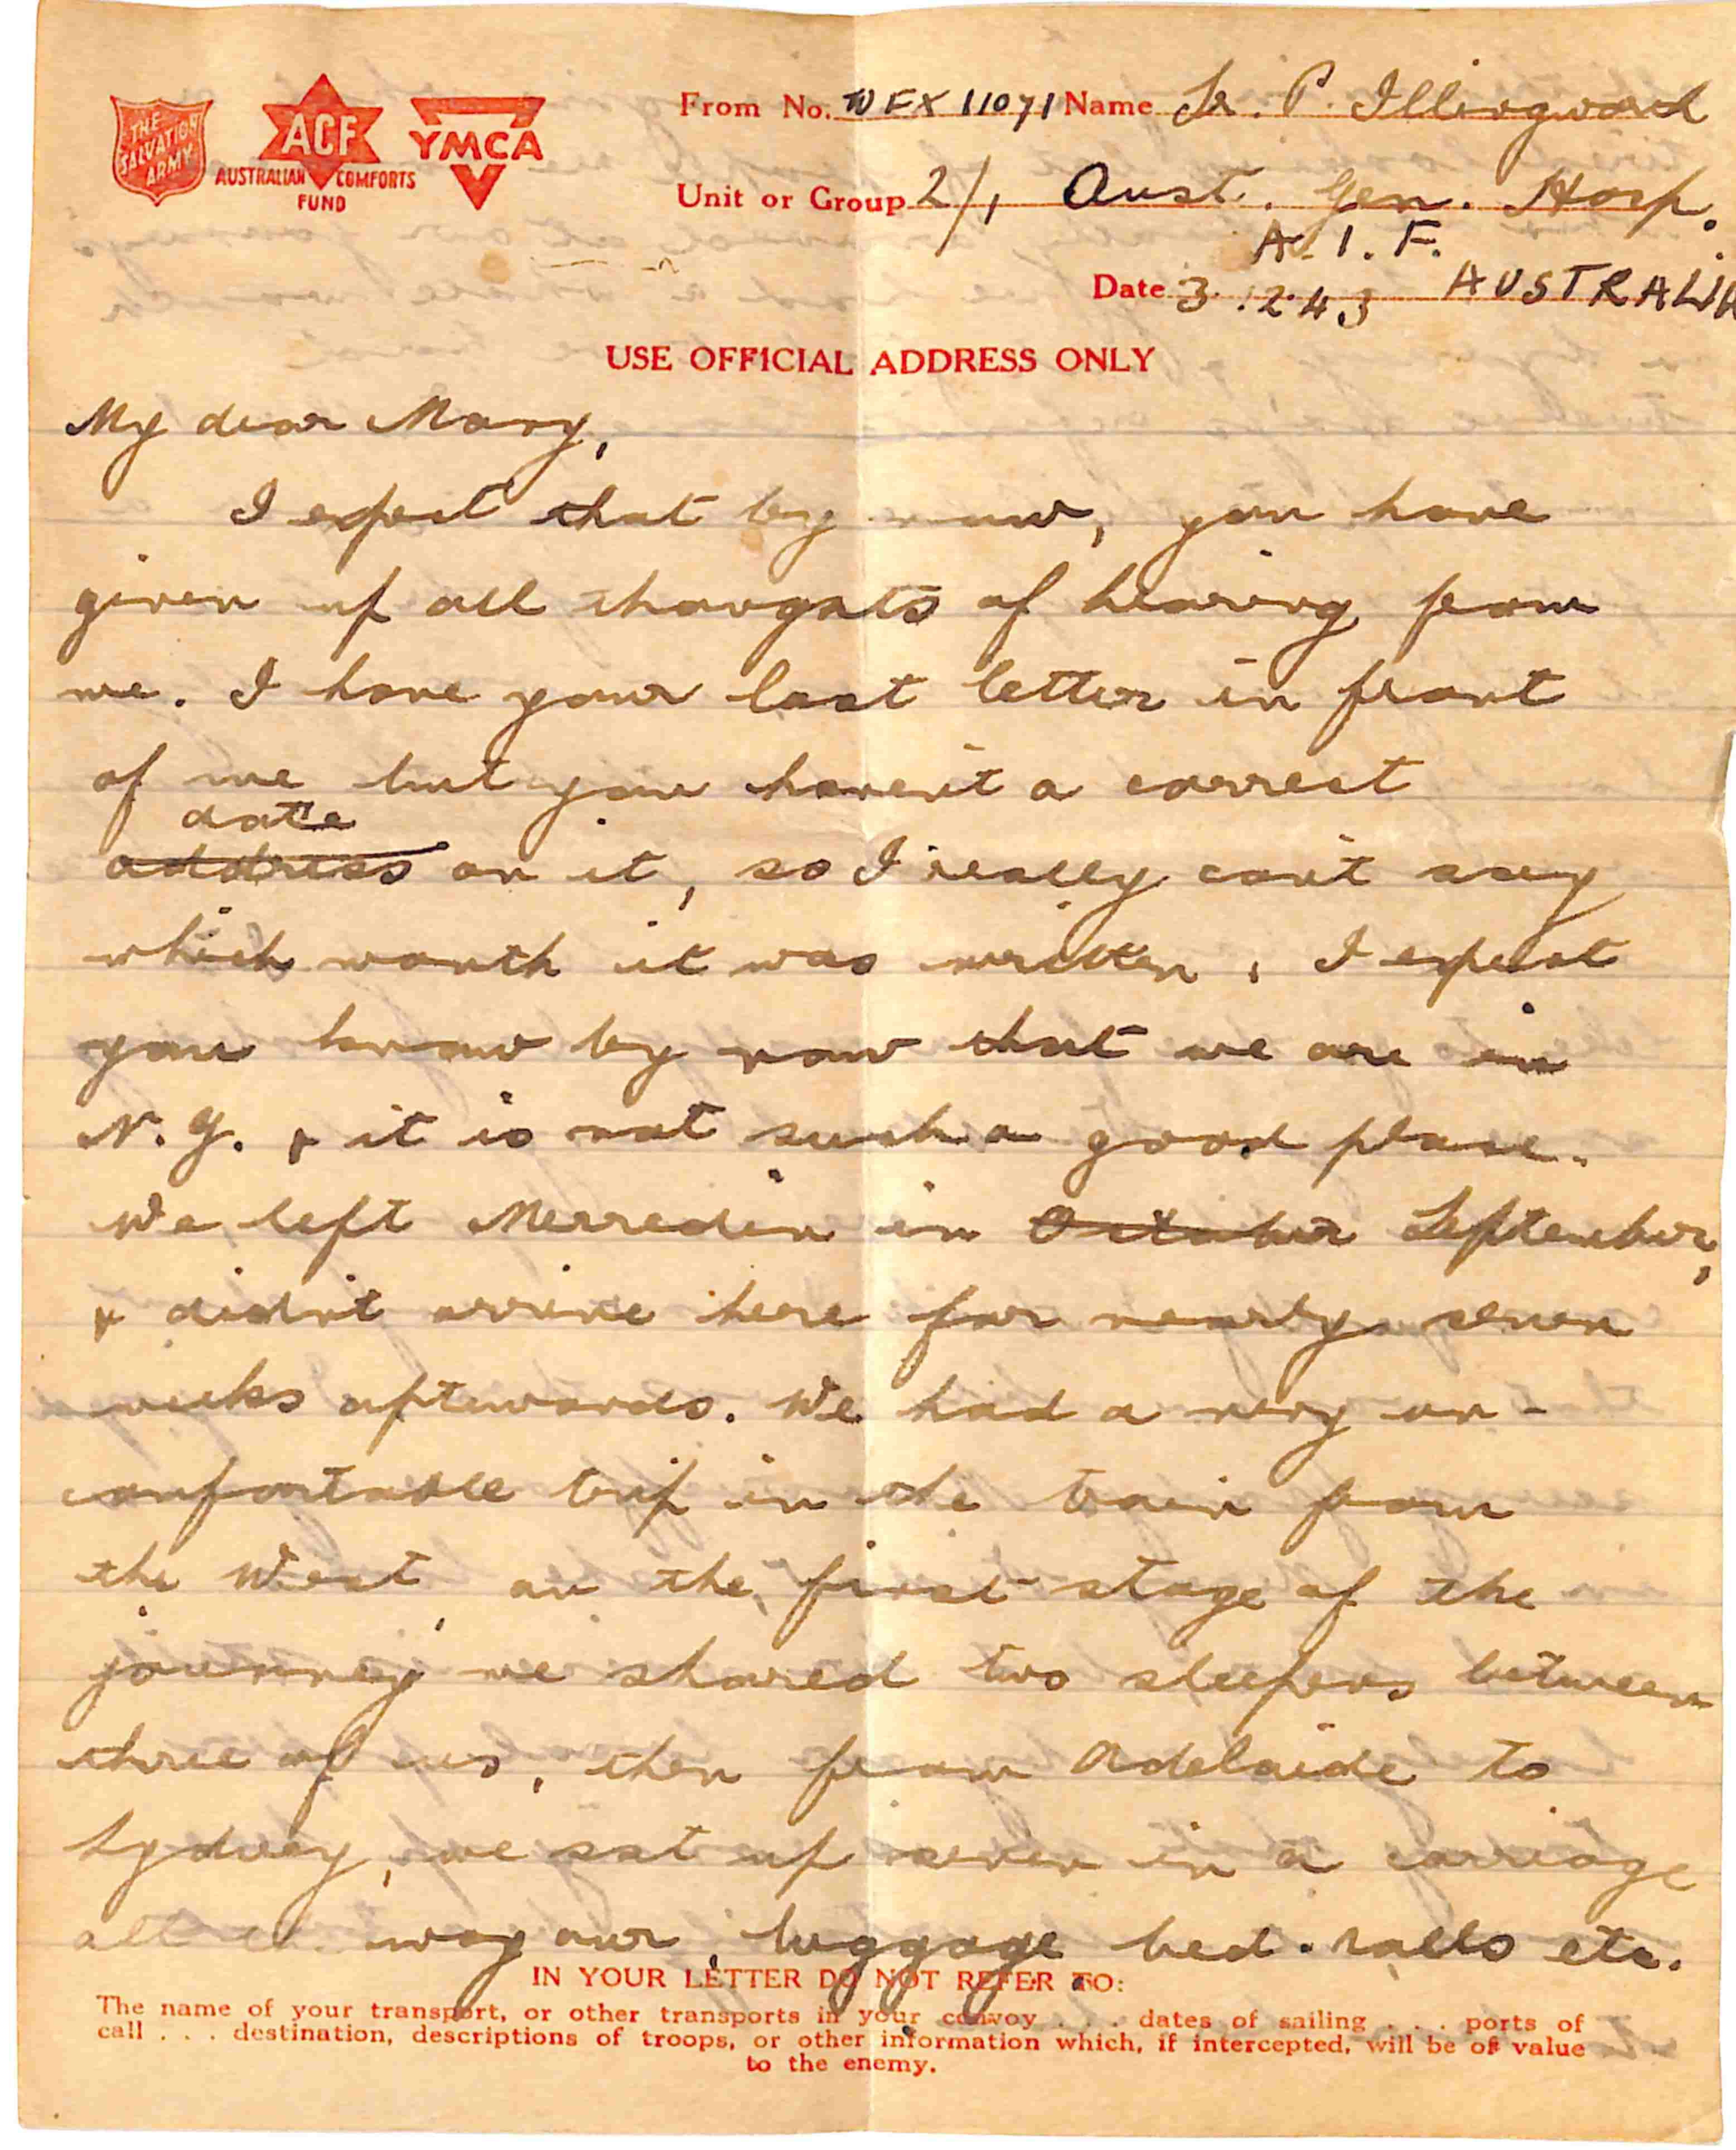 THE SALVATION ARMY
ACF
AUSTRALIAN COMFORTS FUND
YMCA
From No. WFX 11071 Name Sr. P. Illingworth
Unit or Group 2/1 Aust. Gen. Hosp.
A. I. F.
Date 3.12.43 AUSTRALIA
USE OFFICIAL ADDRESS ONLY
My dear Mary,
I expect that by now, you have
given up all thoughts of hearing from
me. I have your last letter in front
of me but you haven't a correct
date
address on it, so I really can't say
which month it was written, I expect
you know by now that we are in
N.G. & it is not such a good place.
We left Merreden in October September,
& didn't arrive here for nearly seven
weeks aftewards. We had a very un-
comfortable trip in the train from
the West, on the first stage of the
journey we shared two sleepers between
three of us, then from Adelaide to
Sydney, we sat up seven in a carriage
all the way our, luggage bed-rolls etc.
IN YOUR LETTER DO NOT REFER TO:
The name of your transport, or other transports in your convoy . . . dates of sailing . . . ports of
call . . . destination, descriptions of troops, or other information which, if intercepted, will be of value
to the enemy.